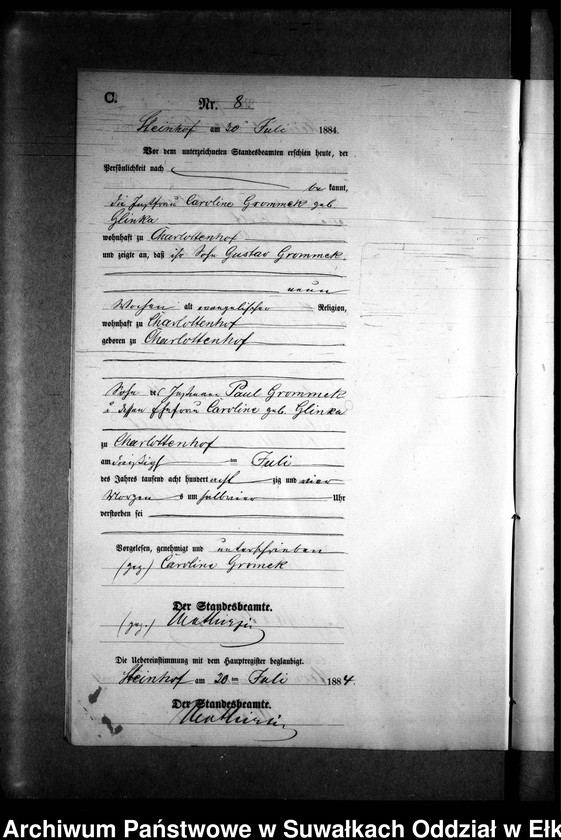 C.
Nr. 8
Steinhof am 30 Juli 1884.
Vor dem unterzeichneten Standesbeamten erschien heute, der
Persönlichkeit nach
be kannt,
die Instfrau Caroline Grommek geb
Glinka
wohnhaft zu Charlottenhof
und zeigte an, daß ihr Sohn Gustav Grommek,
neun
Wochen alt evangelischer Religion,
wohnhaft zu Charlottenhof
geboren zu Charlottenhof
Sohn des Instmann Paul Grommek
u dessen Ehefrau Caroline geb. Glinka
zu Charlottenhof
am dreißigst en Juli
des Jahres tausend acht hundert acht zig und vier
Morgen s um halb vier Uhr
verstorben sei
Vorgelesen, genehmigt und unterschrieben
(gez.) Caroline Gromek
Der Standesbeamte.
(gez.)
Die Uebereinstimmung mit dem Hauptregister beglaubigt.
Steinhof am 30 ten Juli 1884.
Der Standesbeamte.
Archiwum Państwowe w Suwałkach Oddział w Ełk